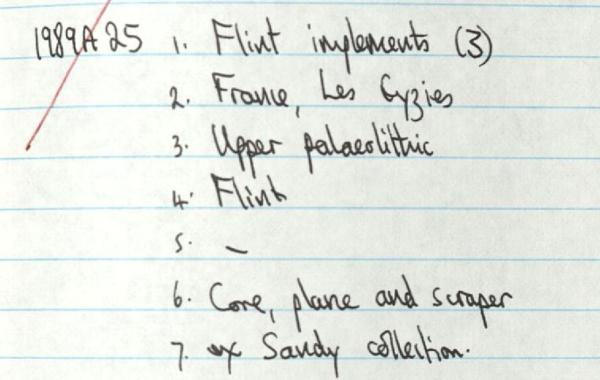 1989A 25 1. Flint implements (3)
2. France, Les Eyzies
3. Upper palaeolithic
4. Flint
5. –
6. Core, plane and scraper
7. ex Sandy collection.